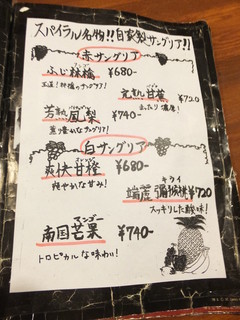 スパイラル名物!!自家製サングリア!!
赤サングリア
ふじ林檎 ¥680-
王道!林檎のサングリア!
完熟甘蕉 ¥720
まったり濃厚!
芳熟鳳梨 ¥740-
白サングリア
爽快甘橙 ¥680-
爽やかな甘み!
キウイ
端麗彌猴桃 ¥720
スッキリした酸味!
マンゴー
南国芒果 ¥740-
トロピカルな味わい!